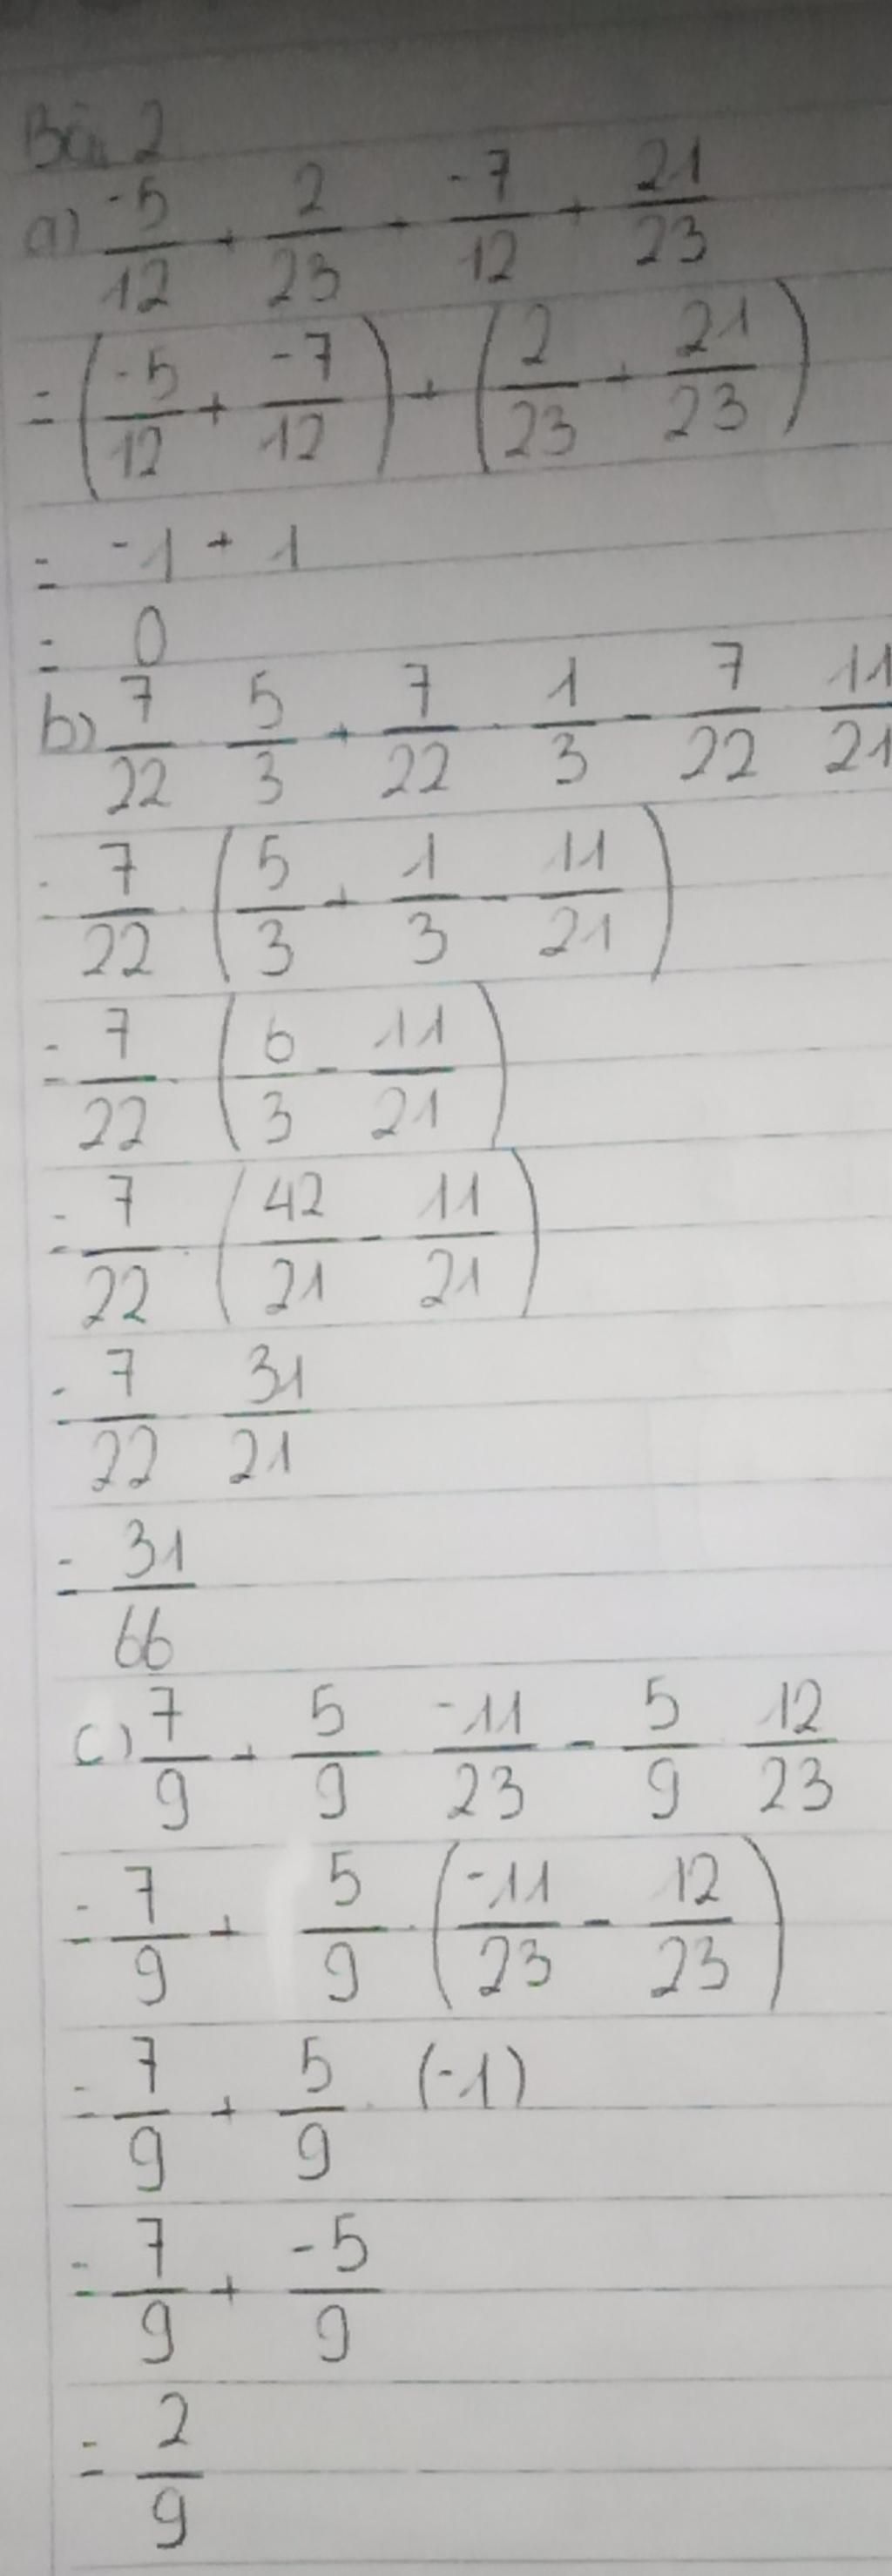 Bài 2
a) -5/12 + 2/23 + -7/12 + 21/23
= (-5/12 + -7/12) + (2/23 + 21/23)
= -1 + 1
= 0
b) 7/22 . 5/3 + 7/22 . 1/3 - 7/22 . 11/21
= 7/22 . (5/3 + 1/3 - 11/21)
= 7/22 . (6/3 - 11/21)
= 7/22 . (42/21 - 11/21)
= 7/22 . 31/21
= 31/66
c) 7/9 + 5/9 . -11/23 - 5/9 . 12/23
= 7/9 + 5/9 . (-11/23 - 12/23)
= 7/9 + 5/9 . (-1)
= 7/9 + -5/9
= 2/9